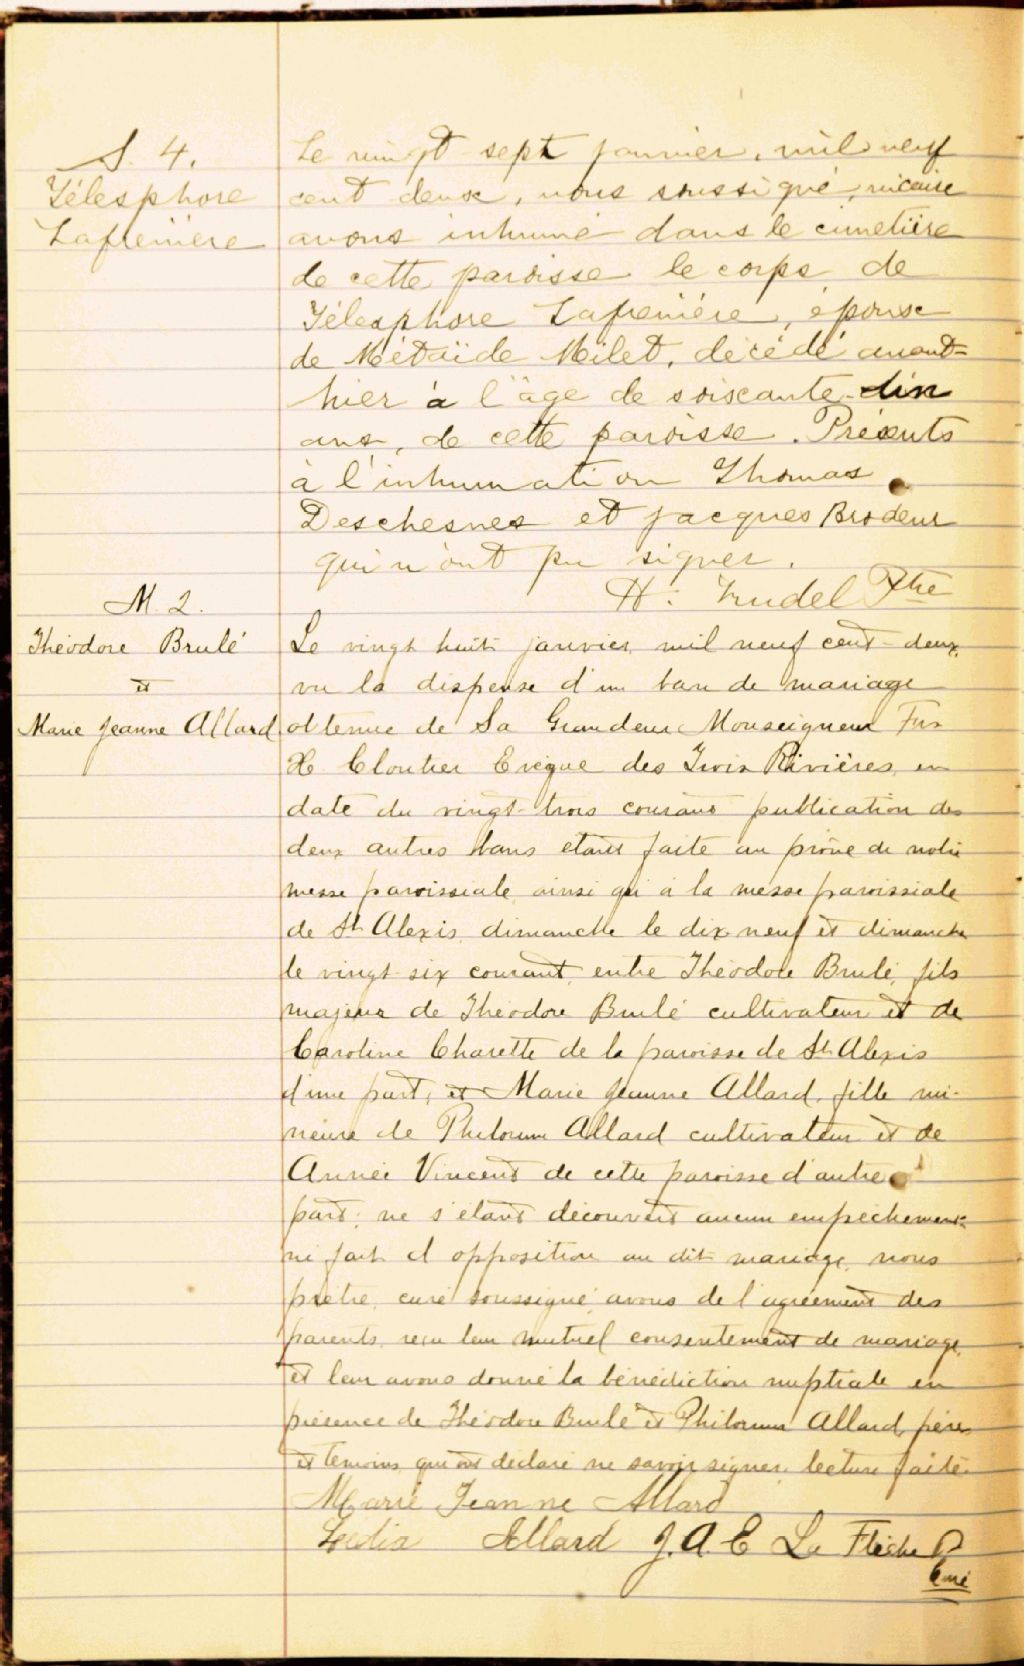 S. 4.
Télesphore
Lafrenière
Le vingt-sept janvier, mil neuf
cent deux, nous soussigné, vicaire
avons inhumé dans le cimetière
de cette paroisse le corps de
Télesphore Lafrenière, époux
de Métaïde Milet, décédé avant-
hier à l'âge de soixante-dix
ans, de cette paroisse. Présents
à l'inhumation Thomas
Deschesnes et Jacques Brodeur
qui n'ont pu signer.
H. Trudel Ptre
M. 2.
Théodore Brulé
et
Marie Jeanne Allard
Le vingt huit janvier mil neuf cent-deux,
vu la dispense d'un ban de mariage
obtenue de Sa Grandeur Monseigneur Frs
X. Cloutier Evêque des Trois Rivières, en
date du vingt-trois courant publication des
deux autres bans étant faite au prône de notre
messe paroissiale ainsi qu'à la messe paroissiale
de St Alexis, dimanche le dix neuf et dimanche
le vingt-six courant, entre Théodore Brulé, fils
majeur de Théodore Brulé cultivateur et de
Caroline Charette de la paroisse de St Alexis
d'une part, et Marie Jeanne Allard, fille mi-
neure de Philorum Allard cultivateur et de
Année Vincent de cette paroisse d'autre
part; ne s'étant découvert aucun empêchement
ni fait d'opposition au dit mariage, nous
prêtre, curé soussigné, avons de l'agrément des
parents, reçu leur mutuel consentement de mariage,
et leur avons donné la bénédiction nuptiale en
présence de Théodore Brulé et Philorum Allard, pères
et témoins, qui ont déclaré ne savoir signer, lecture faite.
Marie Jeanne Allard
Allard J. A. E La Flèche P
Curé